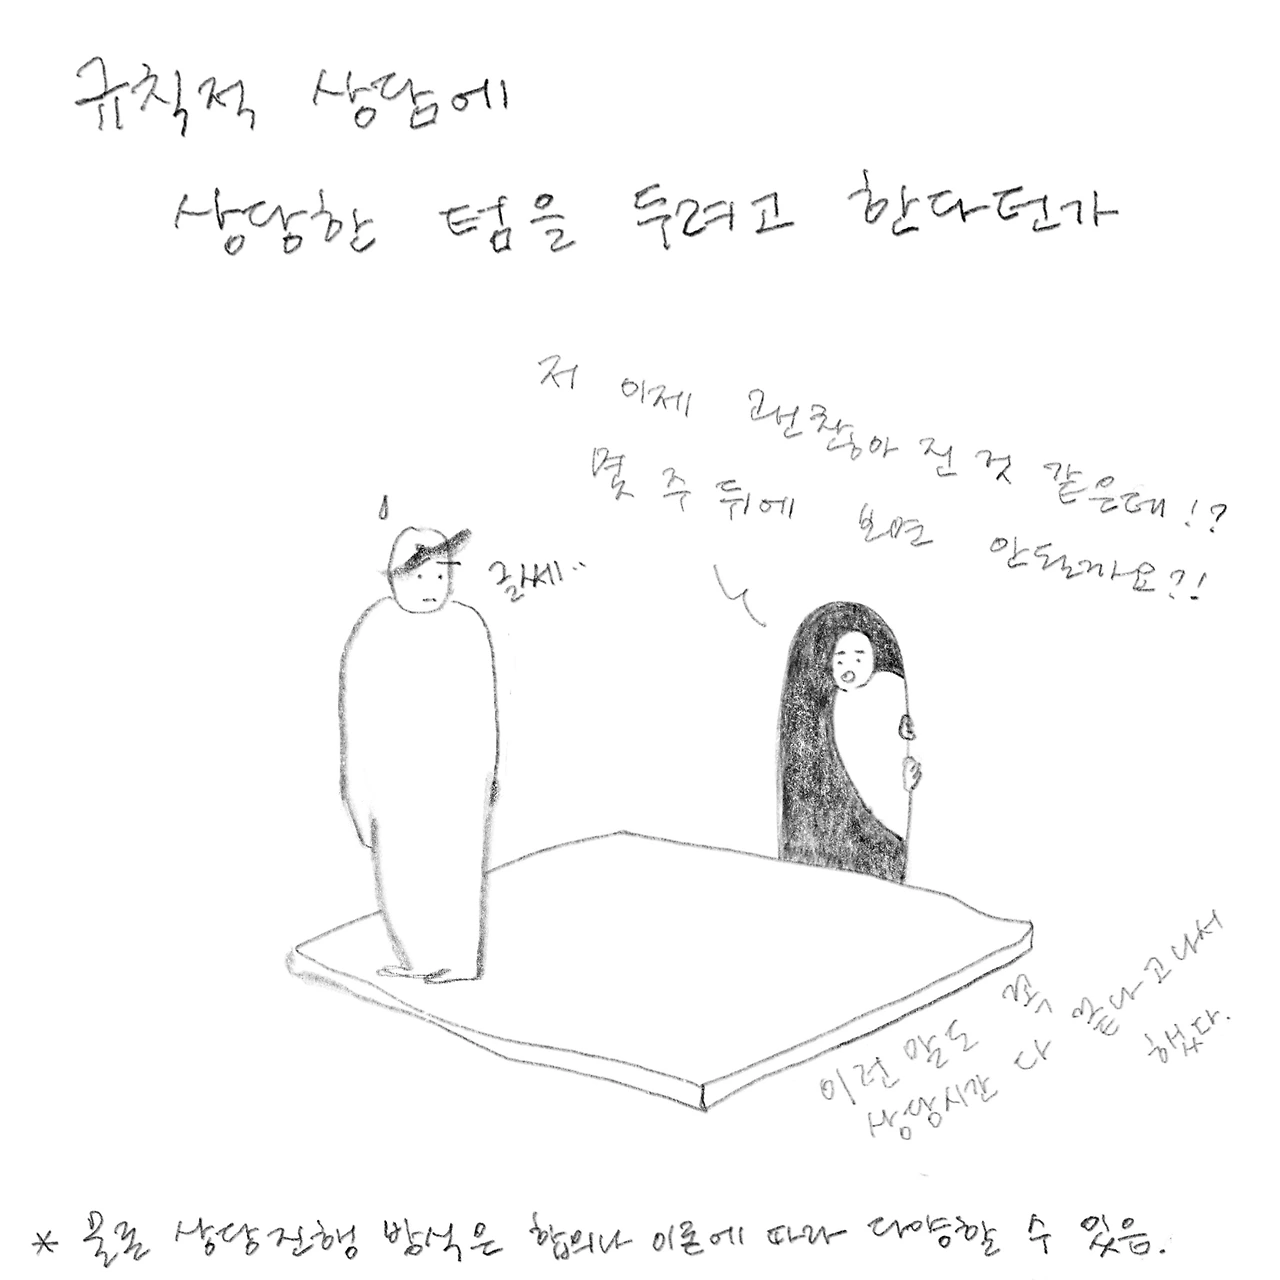 규칙적 상담에
상당한 텀을 두려고 한다던가
저 이제 괜찮아 진 것 같은데!?
몇 주 뒤에 보면 안될까요?!
글쎄..
이런 말도 꼭
상담시간 다 끝나고나서
했다.
* 물론 상담진행 방식은 합의나 이론에 따라 다양할 수 있음.